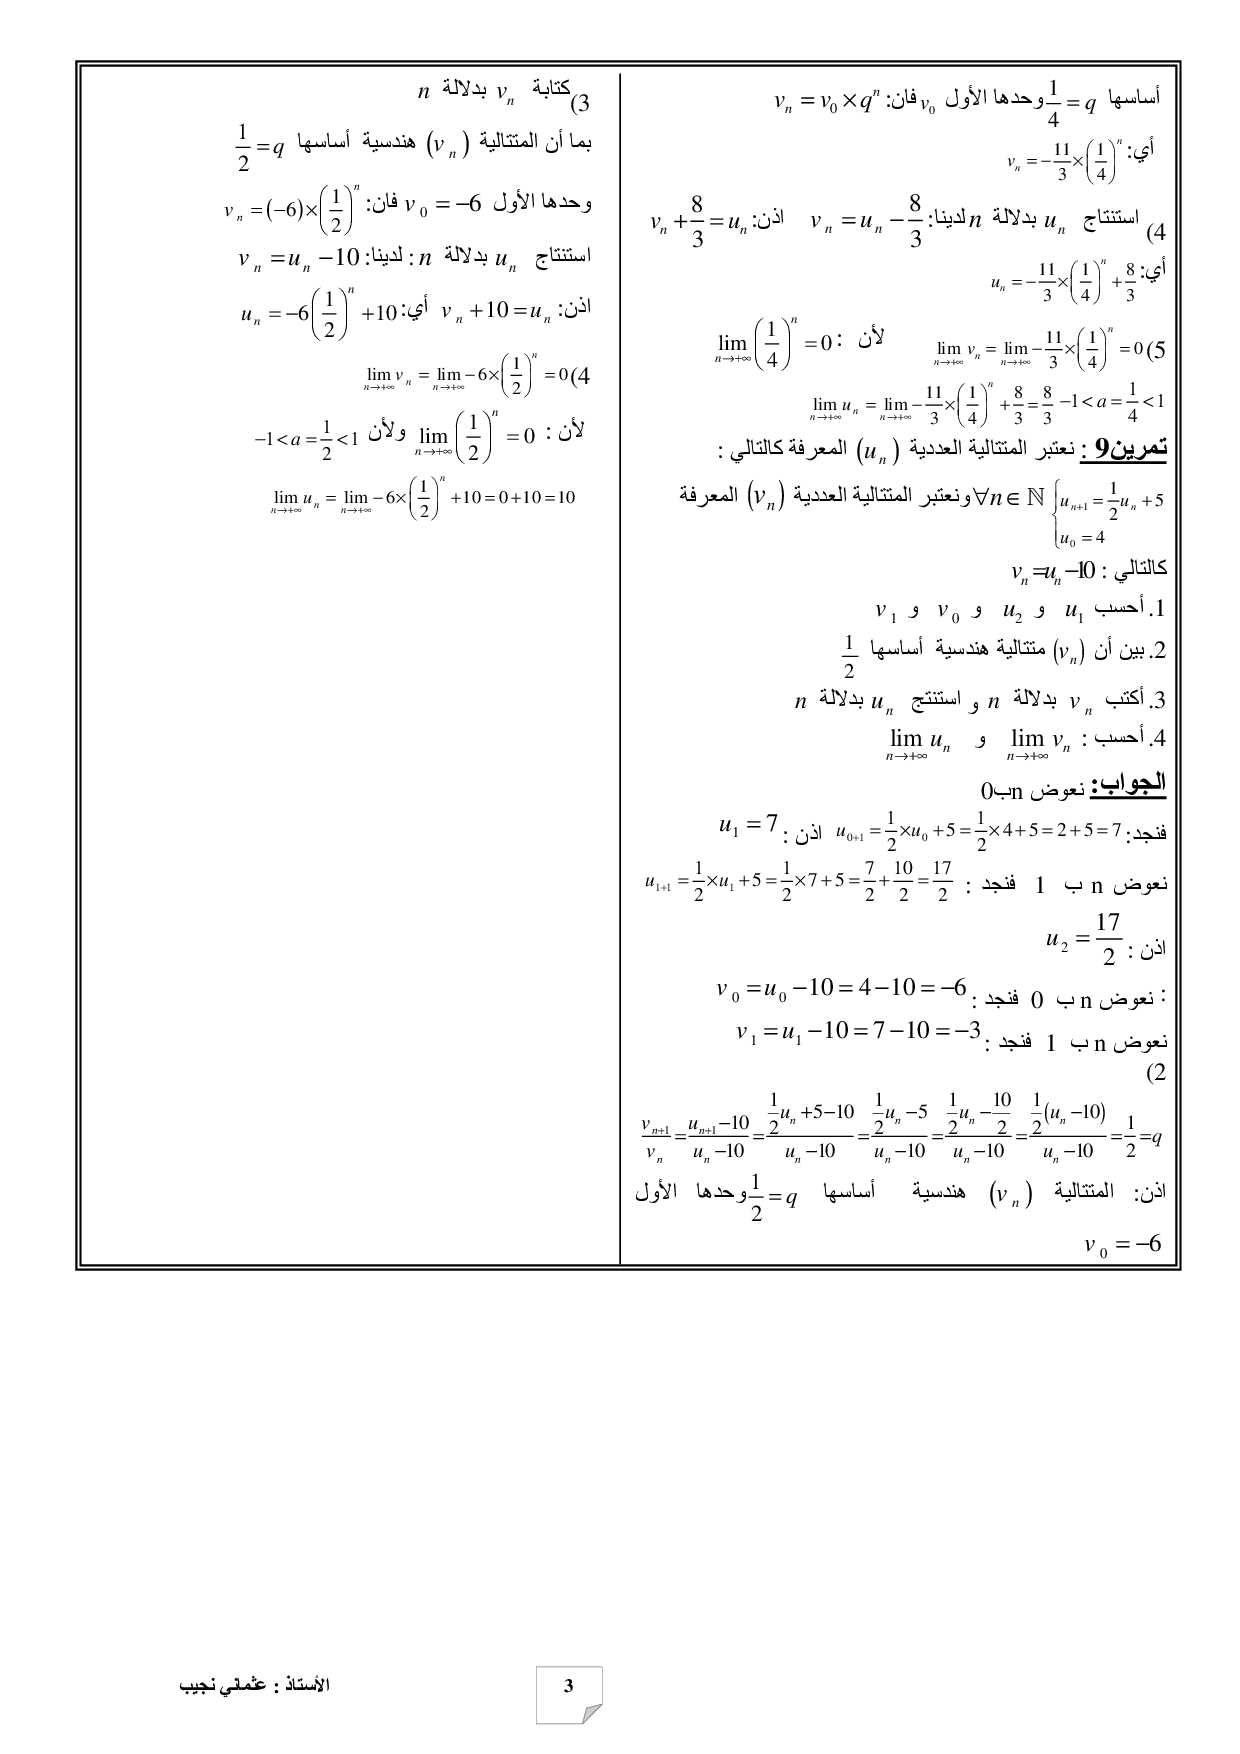 أساسها 1/4 = q وحدها الأول v₀ فان: vₙ = v₀ × qⁿ
أي: vₙ = −11/3 × (1/4)ⁿ
4) استنتاج uₙ بدلالة n لدينا: vₙ = uₙ − 8/3 اذن: vₙ + 8/3 = uₙ
أي: uₙ = −11/3 × (1/4)ⁿ + 8/3
5) lim(n→+∞) vₙ = lim(n→+∞) −11/3 × (1/4)ⁿ = 0 لأن : lim(n→+∞) (1/4)ⁿ = 0
−1 < a = 1/4 < 1 lim(n→+∞) uₙ = lim(n→+∞) −11/3 × (1/4)ⁿ + 8/3 = 8/3
تمرين9 : نعتبر المتتالية العددية (uₙ) المعرفة كالتالي :
{ uₙ₊₁ = 1/2 uₙ + 5 ; u₀ = 4 ∀n ∈ ℕ ونعتبر المتتالية العددية (vₙ) المعرفة
كالتالي : vₙ = uₙ − 10
1. أحسب u₁ و u₂ و v₀ و v₁
2. بين أن (vₙ) متتالية هندسية أساسها 1/2
3. أكتب vₙ بدلالة n و استنتج uₙ بدلالة n
4. أحسب : lim(n→+∞) vₙ و lim(n→+∞) uₙ
الجواب: نعوض nب0
فنجد: u₀₊₁ = 1/2 × u₀ + 5 = 1/2 × 4 + 5 = 2 + 5 = 7 اذن : u₁ = 7
نعوض n ب 1 فنجد : u₁₊₁ = 1/2 × u₁ + 5 = 1/2 × 7 + 5 = 7/2 + 10/2 = 17/2
اذن : u₂ = 17/2
: نعوض n ب 0 فنجد : v₀ = u₀ − 10 = 4 − 10 = −6
نعوض n ب 1 فنجد : v₁ = u₁ − 10 = 7 − 10 = −3
2)
vₙ₊₁/vₙ = (uₙ₊₁ − 10)/(uₙ − 10) = (1/2 uₙ + 5 − 10)/(uₙ − 10) = (1/2 uₙ − 5)/(uₙ − 10) = (1/2 uₙ − 10/2)/(uₙ − 10) = (1/2 (uₙ − 10))/(uₙ − 10) = 1/2 = q
اذن: المتتالية (vₙ) هندسية أساسها 1/2 = q وحدها الأول
v₀ = −6
3) كتابة vₙ بدلالة n
بما أن المتتالية (vₙ) هندسية أساسها 1/2 = q
وحدها الأول v₀ = −6 فان: vₙ = (−6) × (1/2)ⁿ
استنتاج uₙ بدلالة n : لدينا: vₙ = uₙ − 10
اذن: vₙ + 10 = uₙ أي: uₙ = −6(1/2)ⁿ + 10
4) lim(n→+∞) vₙ = lim(n→+∞) −6 × (1/2)ⁿ = 0
لأن : lim(n→+∞) (1/2)ⁿ = 0 ولأن −1 < a = 1/2 < 1
lim(n→+∞) uₙ = lim(n→+∞) −6 × (1/2)ⁿ + 10 = 0 + 10 = 10
الأستاذ : عثماني نجيب
3